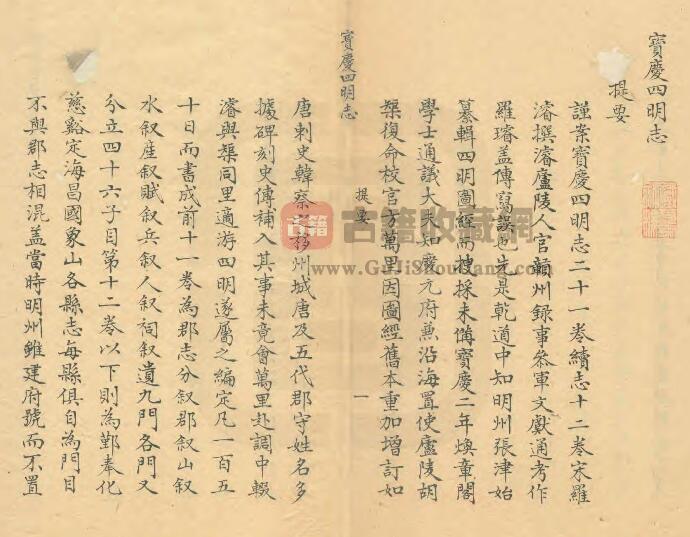 寶慶四明志
提要
謹案寶慶四明志二十一卷續志十二卷宋羅
濬撰濬廬陵人官贛州録事叅軍文獻通考作
羅璿盖傳寫誤也先是乾道中知明州張津始
纂輯四明圖經而搜採未備寶慶二年煥章閣
學士通議大夫知慶元府兼沿海置使廬陵胡
榘復命校官方萬里因圖經舊本重加增訂如
寶慶四明志
提要
一
唐刺史韓察 移州城唐及五代郡守姓名多
據碑刻史傳補入其事未竟會萬里赴調中輟
濬與榘同里適游四明遂屬之編定凡一百五
十日而書成前十一卷為郡志分叙郡叙山叙
水叙産叙賦叙兵叙人叙祠叙遺九門各門又
分立四十六子目第十二卷以下則為鄞奉化
慈谿定海昌國象山各縣志每縣俱自為門目
不與郡志相混盖當時明州雖建府號而不置
古籍
古籍收藏網
www.GuJiShouCang.com